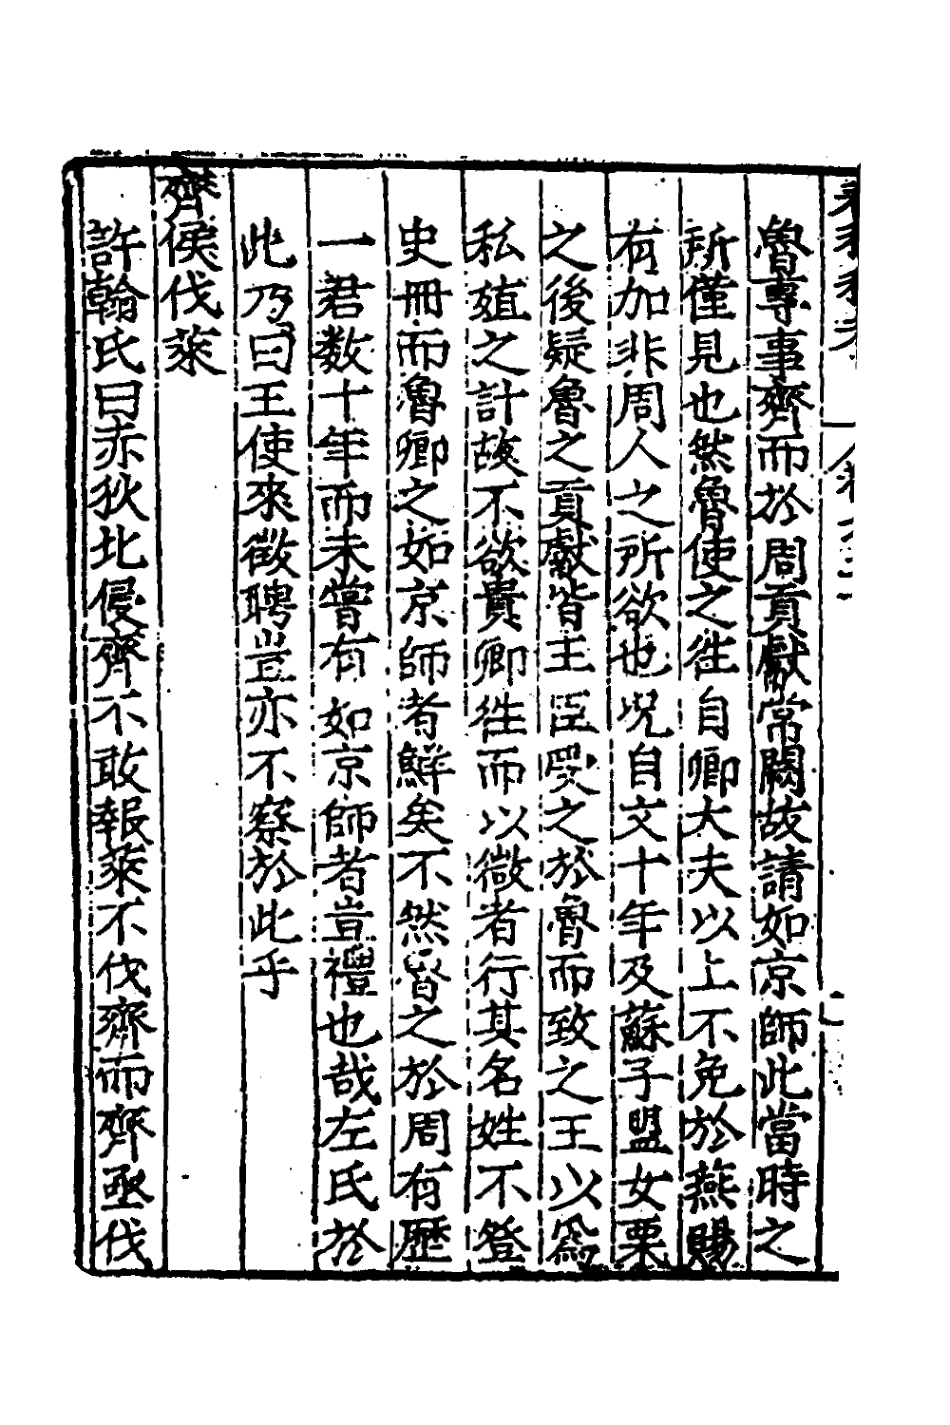 魯尊事齊而於周貢獻常闕故請如京師此當時之
所僅見也然魯使之往自卿大夫以上不免於燕賜
有加非周人之所欲也况自文十年及蘇子盟女栗
之後疑魯之貢獻皆王臣受之於魯而致之王以爲
私殖之計故不欲貴卿往而以微者行其名姓不登
史冊而魯卿之如京師者鮮矣不然魯之於周有歷
一君数十年而未嘗有如京師者豈禮也哉左氏於
此乃曰王使來徵聘豈亦不察於此乎
齊侯伐萊
許翰氏曰赤狄北侵齊不敢報萊不伐齊而齊亟伐